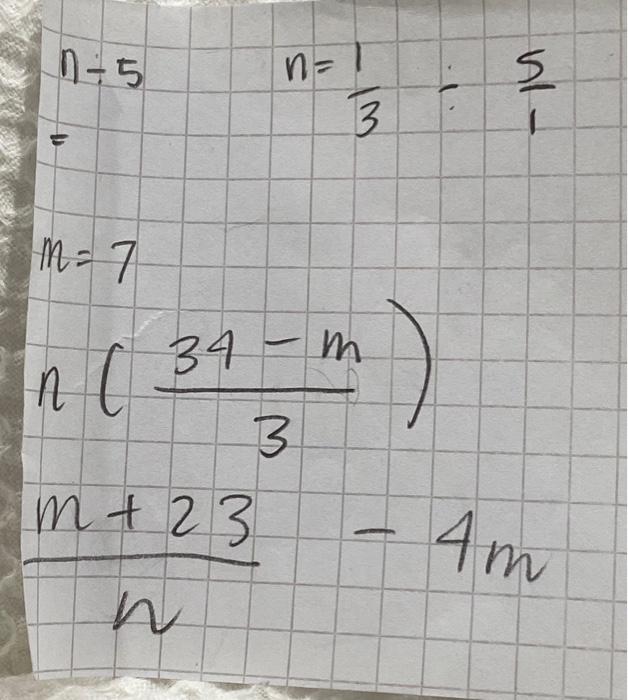 n÷5 n= 1/3 ÷ 5/1
=
m=7
n ( (34 - m)/3 )
(m + 23)/n - 4m